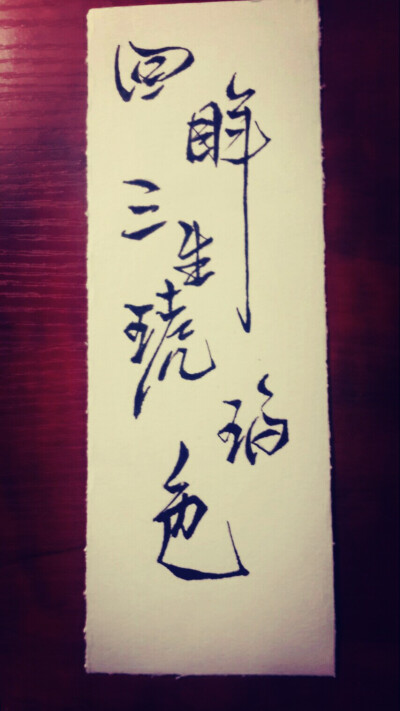 回眸三生琥珀色